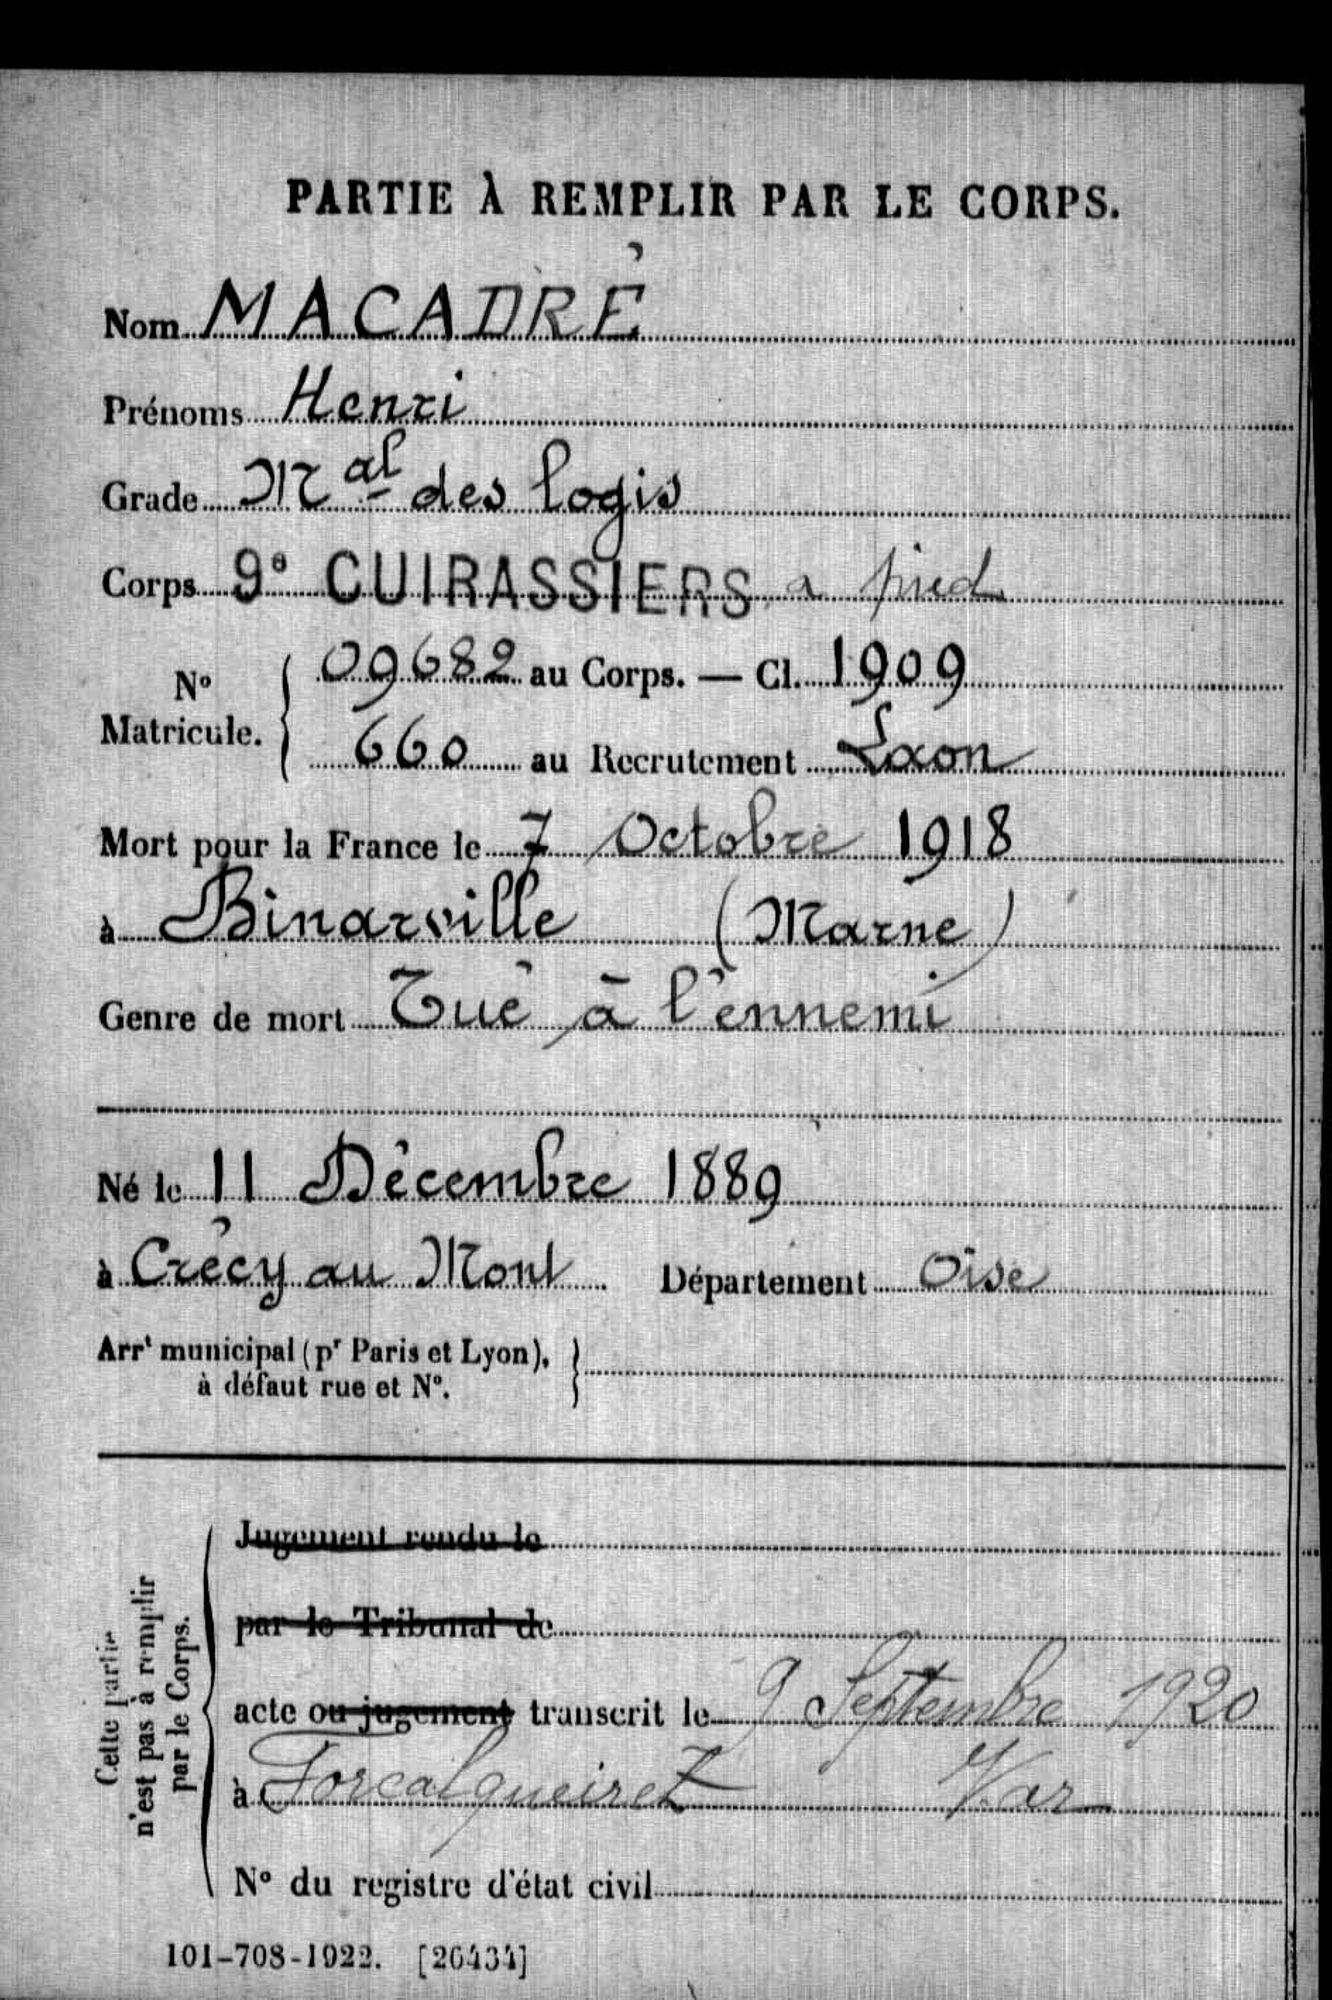 PARTIE À REMPLIR PAR LE CORPS.
Nom MACADRÉ
Prénoms Henri
Grade Mal des logis
Corps 9e CUIRASSIERS à pied
No Matricule. { 09682 au Corps. — Cl. 1909
660 au Recrutement Laon
Mort pour la France le 7 Octobre 1918
à Binarville (Marne)
Genre de mort Tué à l'ennemi
Né le 11 Décembre 1889
à Crécy au Mont Département Oise
Arrt municipal (pr Paris et Lyon), }
à défaut rue et No.
Cette partie
n'est pas à remplir
par le Corps.
Jugement rendu le
par le Tribunal de
acte ou jugement transcrit le 9 Septembre 1920
à Forcalqueiret Var
No du registre d'état civil
101-708-1922. [26434]